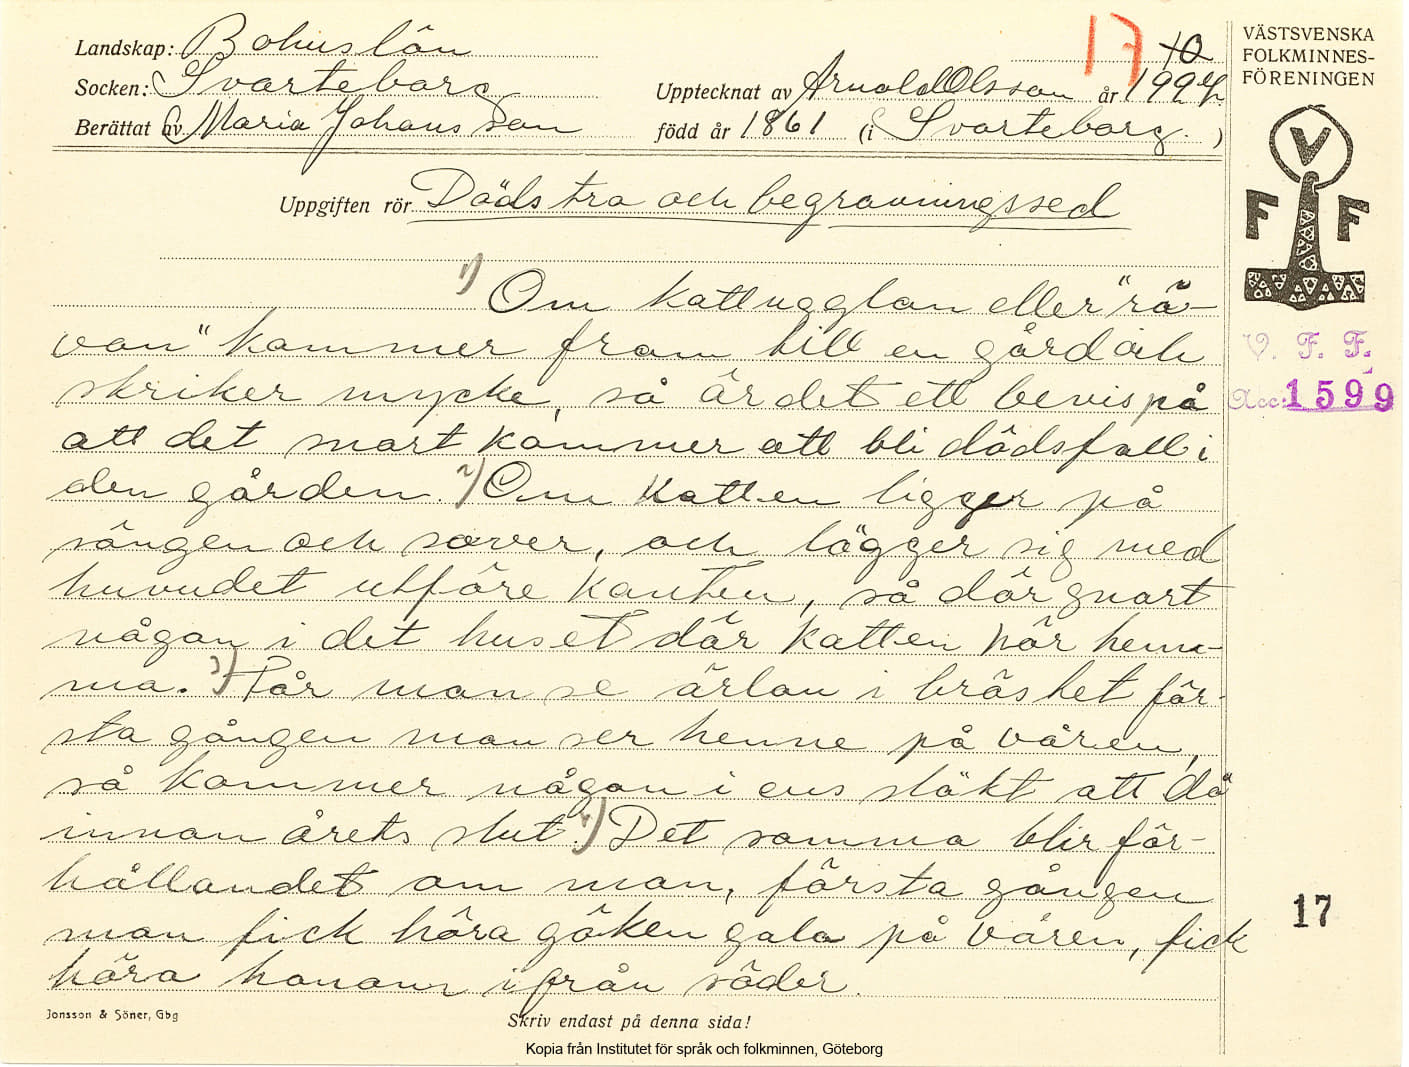 17
10
Landskap: Bohuslän
Socken: Svarteborg
Upptecknat av Arnold Olsson år 1924
Berättat av Maria Johansson
född år 1861 (i Svarteborg.)
Uppgiften rör Dödstro och begravningssed
1) Om kattugglan eller "rä-
van" kommer fram till en gård och
skriker mycke, så är det ett bevis på
att det snart kommer att bli dödsfall i
den gården. 2) Om katten ligger på
sängen och sover, och lägger sig med
huvudet utföre kanten, så dör snart
någon i det huset där katten hör hem-
ma. 3) Får man se ärlan i bräshet för-
sta gången man ser henne på våren,
så kommer någon i ens släkt att dö
innan årets slut. 4) Det samma blir för-
hållandet om man, första gången
man fick höra göken gala på våren, fick
höra honom ifrån söder.
Jonsson & Söner, Gbg
Skriv endast på denna sida!
Kopia från Institutet för språk och folkminnen, Göteborg
VÄSTSVENSKA
FOLKMINNES-
FÖRENINGEN
V
F F
V. F. F.
Acc: 1599
17